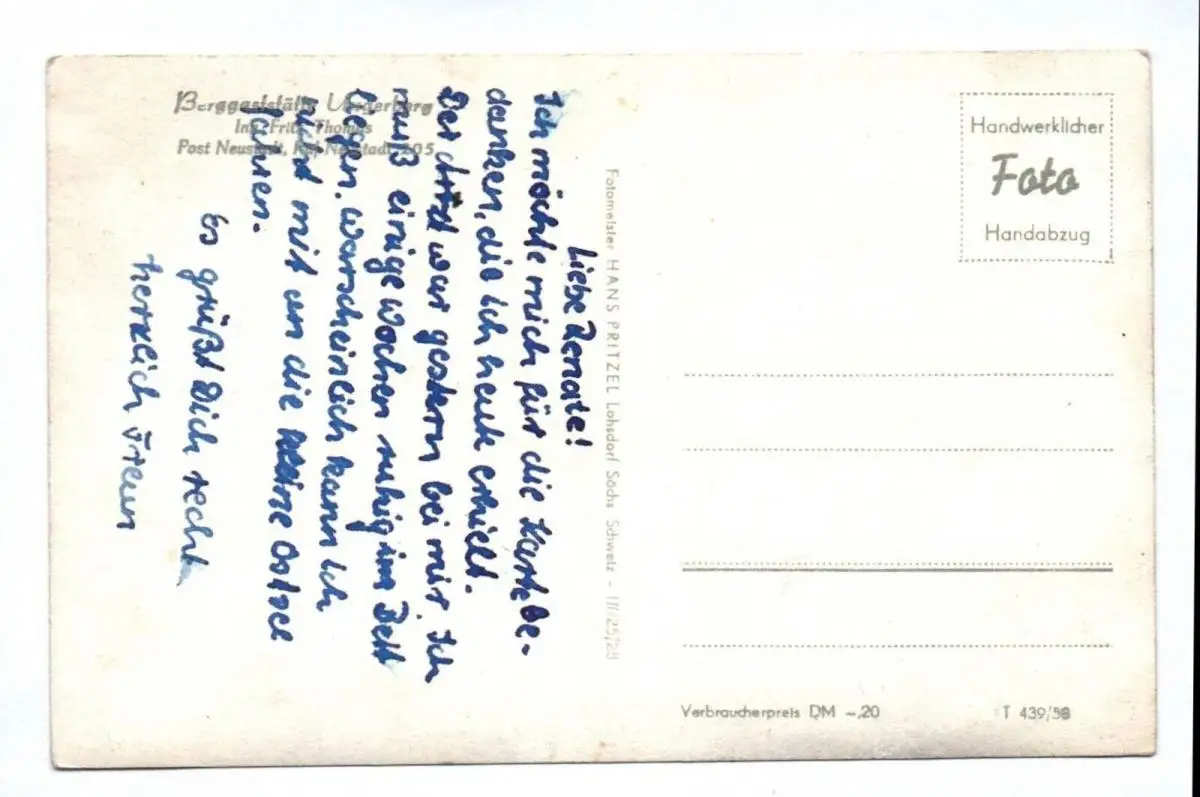 Berggaststätte Ungerberg
Inh. Fritz Thomas
Post Neustadt, Ruf Neustadt 205
Liebe Renate!
Ich möchte mich für die Karte be-
danken, die ich heute erhielt.
Der Arzt war gestern bei mir. Ich
muß einige Wochen ruhig im Bett
liegen. Warscheinlich kann ich
nicht mit an die Ostsee
fahren.
Es grüßt Dich recht
herzlich
Fotomeister HANS PRITZEL Lohsdorf Sächs Schweiz - III/25/28
Handwerklicher
Foto
Handabzug
Verbraucherpreis DM -,20
T 439/58